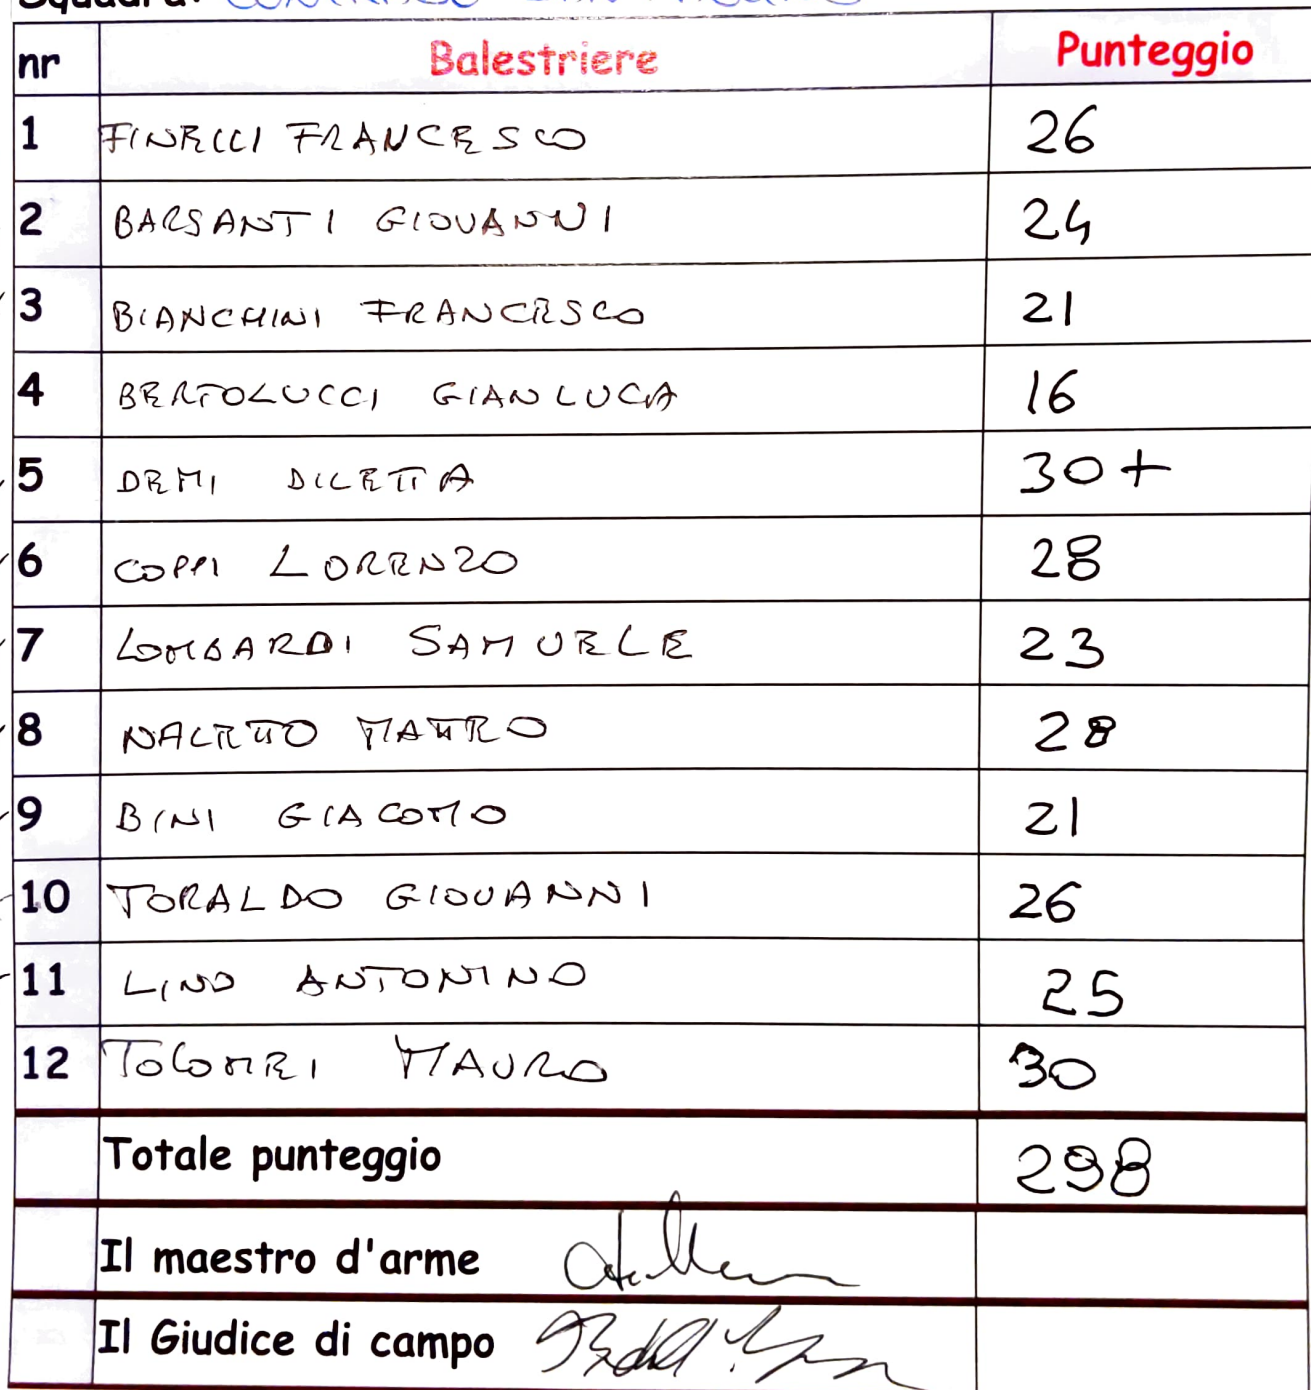 Squadra:
nr Balestriere Punteggio
1 FINELLI FRANCESCO 26
2 BARSANTI GIOVANNI 24
3 BIANCHINI FRANCESCO 21
4 BERTOLUCCI GIANLUCA 16
5 DEMI DILETTA 30+
6 COPPI LORENZO 28
7 LOMBARDI SAMUELE 23
8 28
9 BINI GIACOMO 21
10 TORALDO GIOVANNI 26
11 LINO ANTONINO 25
12 TOLOMEI MAURO 30
Totale punteggio 298
Il maestro d'arme
Il Giudice di campo